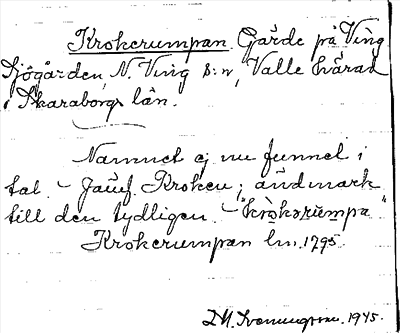 Krokerumpan. Gärde på Ving
Sjögården, N. Ving s:n, Valle härad
i Skaraborgs län.
Namnet ej nu funnet i
tal. – Jämf. Kroken; ändmark
till den tydligen. – "krokərumpa"
Krokerumpan lm. 1795.
Svenungsson. 1945.